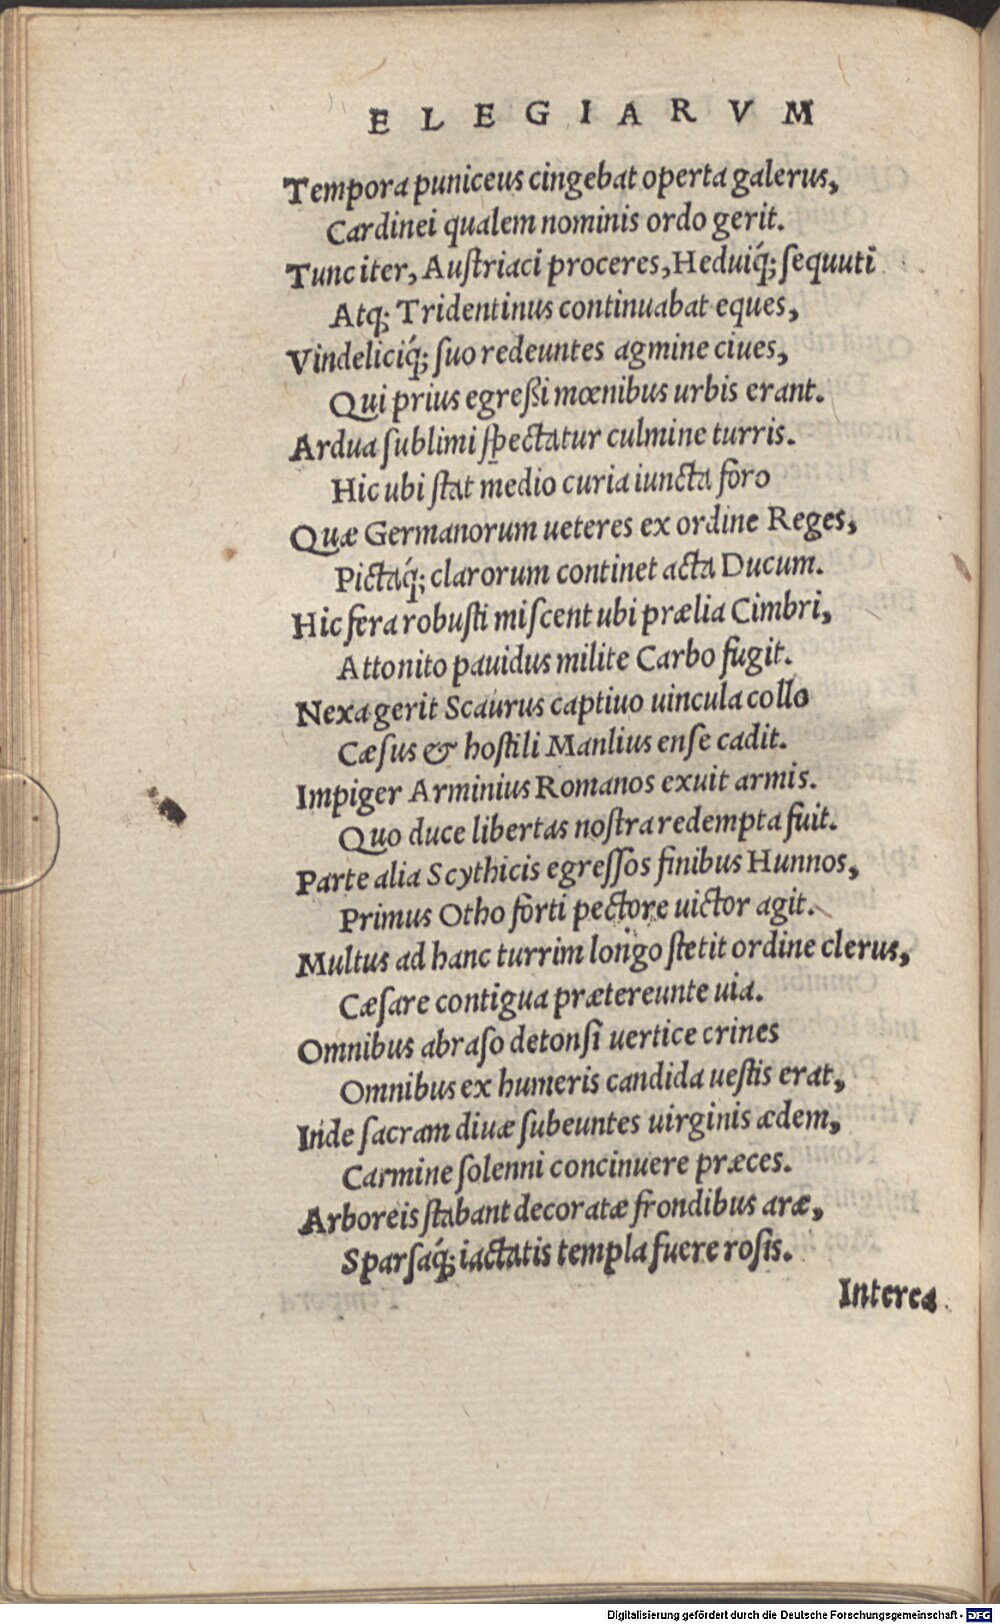 ELEGIARVM
Tempora puniceus cingebat operta galerus,
Cardinei qualem nominis ordo gerit.
Tunc iter, Auſtriaci proceres, Heduiq́; ſequuti
Atq; Tridentinus continuabat eques,
Vindeliciq́; ſuo redeuntes agmine ciues,
Qui prius egreßi mœnibus urbis erant.
Ardua ſublimi ſpectatur culmine turris.
Hic ubi ſtat medio curia iuncta foro
Quæ Germanorum ueteres ex ordine Reges,
Pictaq́; clarorum continet acta Ducum.
Hic fera robuſti miſcent ubi prælia Cimbri,
Attonito pauidus milite Carbo fugit.
Nexa gerit Scaurus captiuo uincula collo
Cæſus & hoſtili Manlius enſe cadit.
Impiger Arminius Romanos exuit armis.
Quo duce libertas noſtra redempta fuit.
Parte alia Scythicis egreſſos finibus Hunnos,
Primus Otho forti pectore uictor agit.
Multus ad hanc turrim longo ſtetit ordine clerus,
Cæſare contigua prætereunte uia.
Omnibus abraſo detonſi uertice crines
Omnibus ex humeris candida ueſtis erat,
Inde ſacram diuæ ſubeuntes uirginis ædem,
Carmine ſolenni concinuere præces.
Arboreis ſtabant decoratæ frondibus aræ,
Sparſaq́; iactatis templa fuere roſis.
Interea
Digitalisierung gefördert durch die Deutsche Forschungsgemeinschaft - DFG